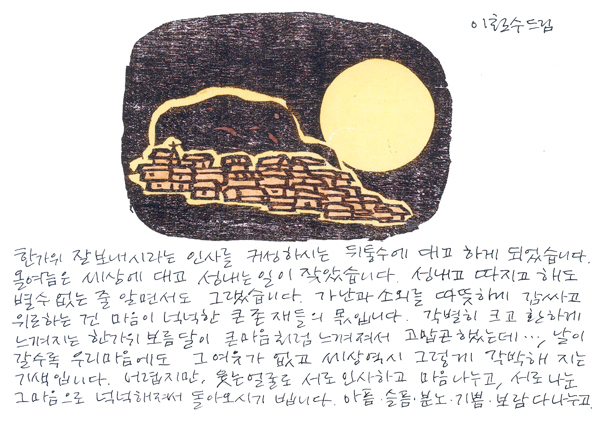 이철수드림
한가위 잘보내시라는 인사를 귀성하시는 뒤통수에 대고 하게 되었습니다.
올여름은 세상에 대고 성내는일이 잦았습니다. 성내고 따지고 해도
별수 없는 줄 알면서도 그랬습니다. 가난과 소외를 따뜻하게 감싸고
위로하는 건 마음이 넉넉한 큰 존재들의 몫입니다. 각별히 크고 환하게
느껴지는 한가위 보름달이 큰마음처럼 느껴져서 고맙곤 했는데…, 날이
갈수록 우리마음에도 그 여유가 없고 세상역시 그렇게 각박해 지는
기색입니다. 어렵지만, 웃는얼굴로 서로인사하고 마음나누고, 서로나눈
그마음으로 넉넉해져서 돌아오시기 빕니다. 아픔·슬픔·분노·기쁨·보람 다나누고.